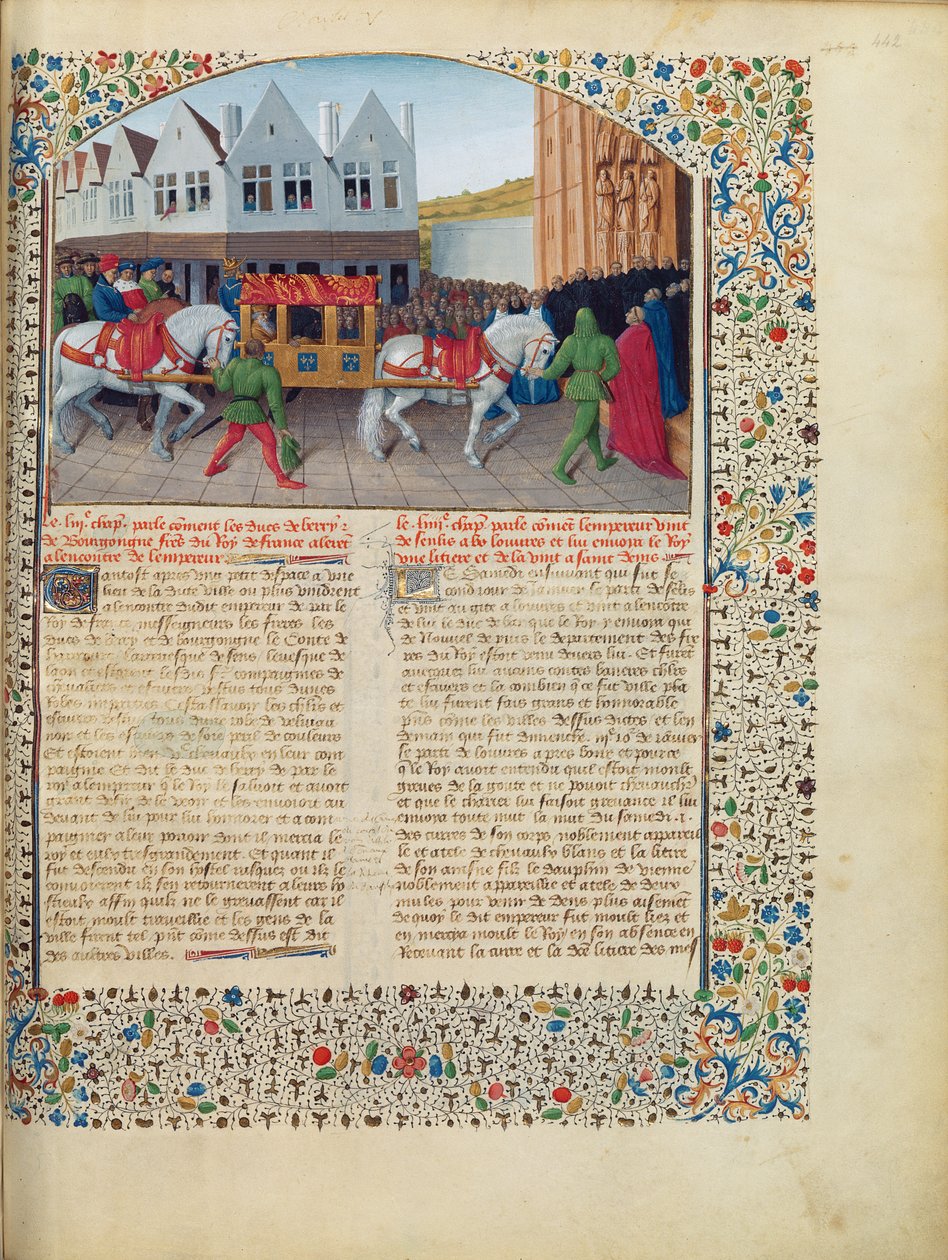 442
Le liiie chapre parle cōment les ducs de berry ⁊
de Bourgongne freres du Roy de france alerēt
alencontre de lempereur
Tantost apres vng petit despace a vne
lieu de la dicte ville ou plus vindrent
alencontre dudit empereur de par le
Roy de france, messeigneurs les freres les
ducs de berry et de bourgongne le Conte de
larcevesque de sens levesque de
chevaliers et escuiers vestus tous dunes
Robes
escuiers tous dune robe de veluiau
noir et les escuiers de soye de couleurs
Et estoient bien chevaulx en leur com
paignie Et dit le duc de berry de par le
roy a lempereur q̄ le roy le saluoit et avoit
grant desir de le veoir et les envoioit au
devant de lui pour lui honnorer et acom
paignier a leur pouoir dont il mercia le
roy et eulx tresgrandement. Et quant il
fut descendu en son hostel Jusquez ou ilz le
convoierent ilz sen retournerent a leurs ho
stieulx affin quilz ne le grevassent car il
estoit moult traveillie et les gens de la
ville firent tel p̄nt cōme dessus est dit
des aultres villes.
le liiiie chapre parle cōmēt lempereur vint
de senlis a louvres et lui envoia le Roy
vne litiere et de la vint a saint denis
Le Samedi ensuivant qui fut se
cond iour de Janvier se parti de sēlis
et vint au giste a louvres et vint alencontre
de lui le duc de bar que le Roy y envoia qui
de nouvel de puis le departement des fre
res du Roy estoit venu devers lui. Et furēt
avecques lui aucuns contes banerez chl̄rs
et escuiers et la combien q̄ ce fut ville plate
te lui furent fais grans et honnorable
p̄ns cōme les villes dessus dictes et len
demain qui fut dimenche. de Janvier
se parti de louvres apres boire et pource
q̄ le Roy avoit entendu quil estoit moult
grevez de la goute et ne pouoit chevauchr̄
et que le charier lui faisoit grevance il lui
envoia toute nuit la nuit du samedi .i.
des curres de son corps, noblement appareil
le et atele de chevaulx blans et la litire
de son aisne filz le dauphin de vienne
noblement appareillie et atele de deux
mules pour venir de dens plus aisement
de quoy le dit empereur fut moult liez et
en mercia moult le Roy en son absence en
Recevant la curre et la dcē litiere des mes